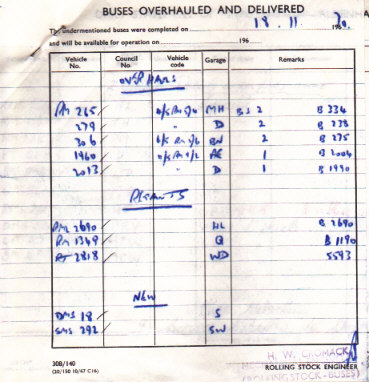 BUSES OVERHAULED AND DELIVERED
The undermentioned buses were completed on 18.11.70.
and will be available for operation on 196
Vehicle No. Council No. Vehicle code Garage Remarks
OVERHAULS
RM 265 MH BS 2 B 334
279 " D 2 B 238
306 BN 2 B 275
1960 AE 1 B 2004
2013 " D 1 B 1990
REPAINTS
RML 2690 HL B 2690
RM 1349 Q B 1190
RT 2818 WD 5593
NEW
DMS 18 S
SMS 292 SW
30B/140
(20/150 10/67 C16)
H. W. CROMACK
ROLLING STOCK ENGINEER
(ROLLING STOCK-BUSES)